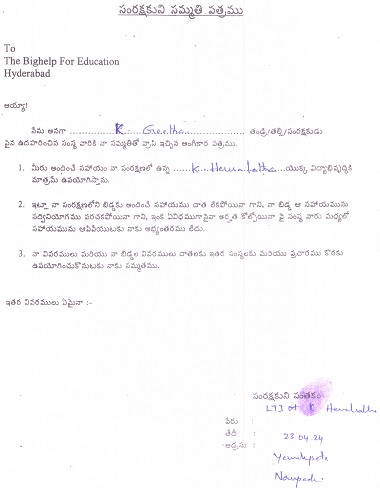 సంరక్షకుని సమ్మతి పత్రము
To
The Bighelp For Education
Hyderabad
అయ్యా!
నేను అనగా ............ K. Geetha ............ తండ్రి/తల్లి/సంరక్షకుడు
పైన ఉదహరించిన సంస్థ వారికి నా సమ్మతితో వ్రాసి ఇచ్చిన అంగీకార పత్రము.
1. మీరు అందించే సహాయం నా సంరక్షణలో ఉన్న ...... K. Hema Latha ......యొక్క విద్యాభివృద్ధికి
మాత్రమే ఉపయోగిస్తాను.
2. ఇట్లా నా సంరక్షణలోని బిడ్డకు అందించే సహాయము చాత లేకపోయినా గాని, నా బిడ్డ ఆ సహాయమును
సద్వినియోగము పరచకపోయినా గాని, ఇంక ఏవిధముగానైనా అర్హత కోల్పోయినా పై సంస్థ వారు మధ్యలో
సహాయమును ఆపివేయుటకు నాకు అభ్యంతరము లేదు.
3. నా వివరములు మరియు నా బిడ్డల వివరములు దాతలకు ఇతర సంస్థలకు మరియు ప్రచారము కొరకు
ఉపయోగించుకొనుటకు నాకు సమ్మతము.
ఇతర వివరములు ఏమైనా :-
సంరక్షకుని సంతకం
LTI of K
పేరు :
తేదీ : 23 04 24
అడ్రసు :